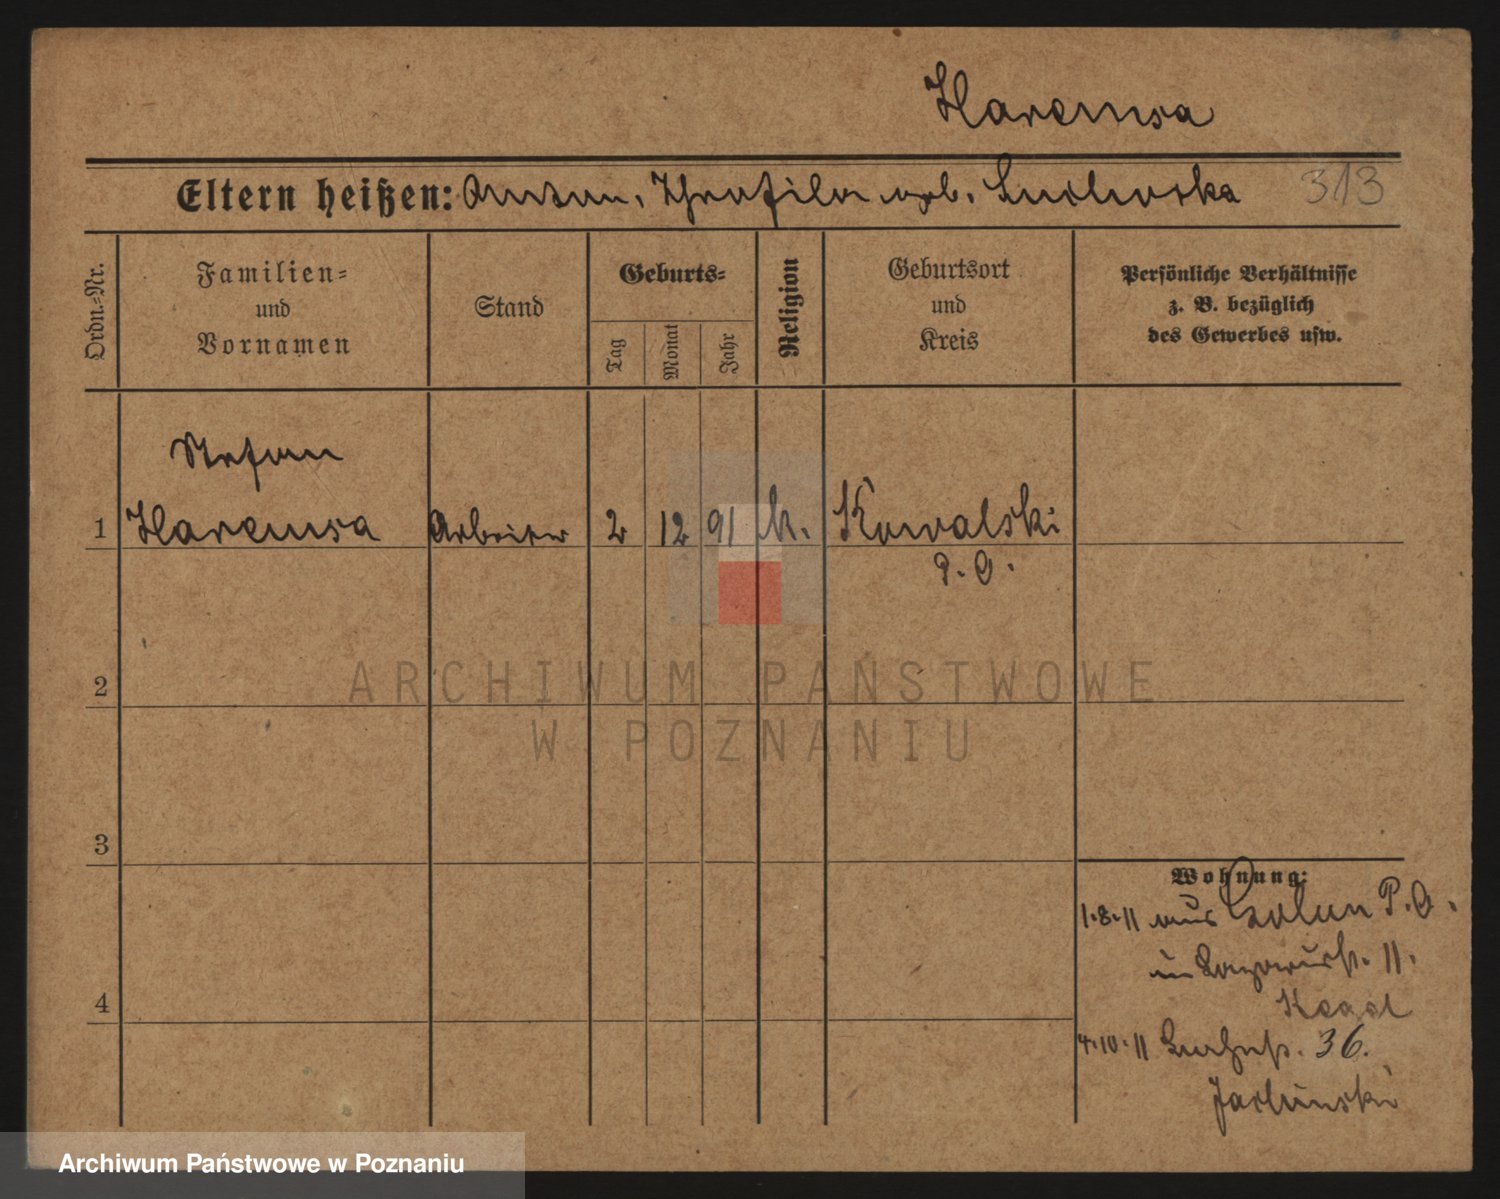 Haremsa
Eltern heißen: Anton, Theofila geb. Suchorska 313
Ordn.-Nr.
Familien-
und
Vornamen
Stand
Geburts-
Tag
Monat
Jahr
Religion
Geburtsort
und
Kreis
Persönliche Verhältnisse
z. B. bezüglich
des Gewerbes usw.
Stefan
1 Haremsa Arbeiter 2 12 91 k. Kowalski
P. O.
2
ARCHIWUM PAŃSTWOWE
W POZNANIU
3
Wohnung:
1.8.11 aus P. O.
in 11.
4
4.10.11 36.
Archiwum Państwowe w Poznaniu